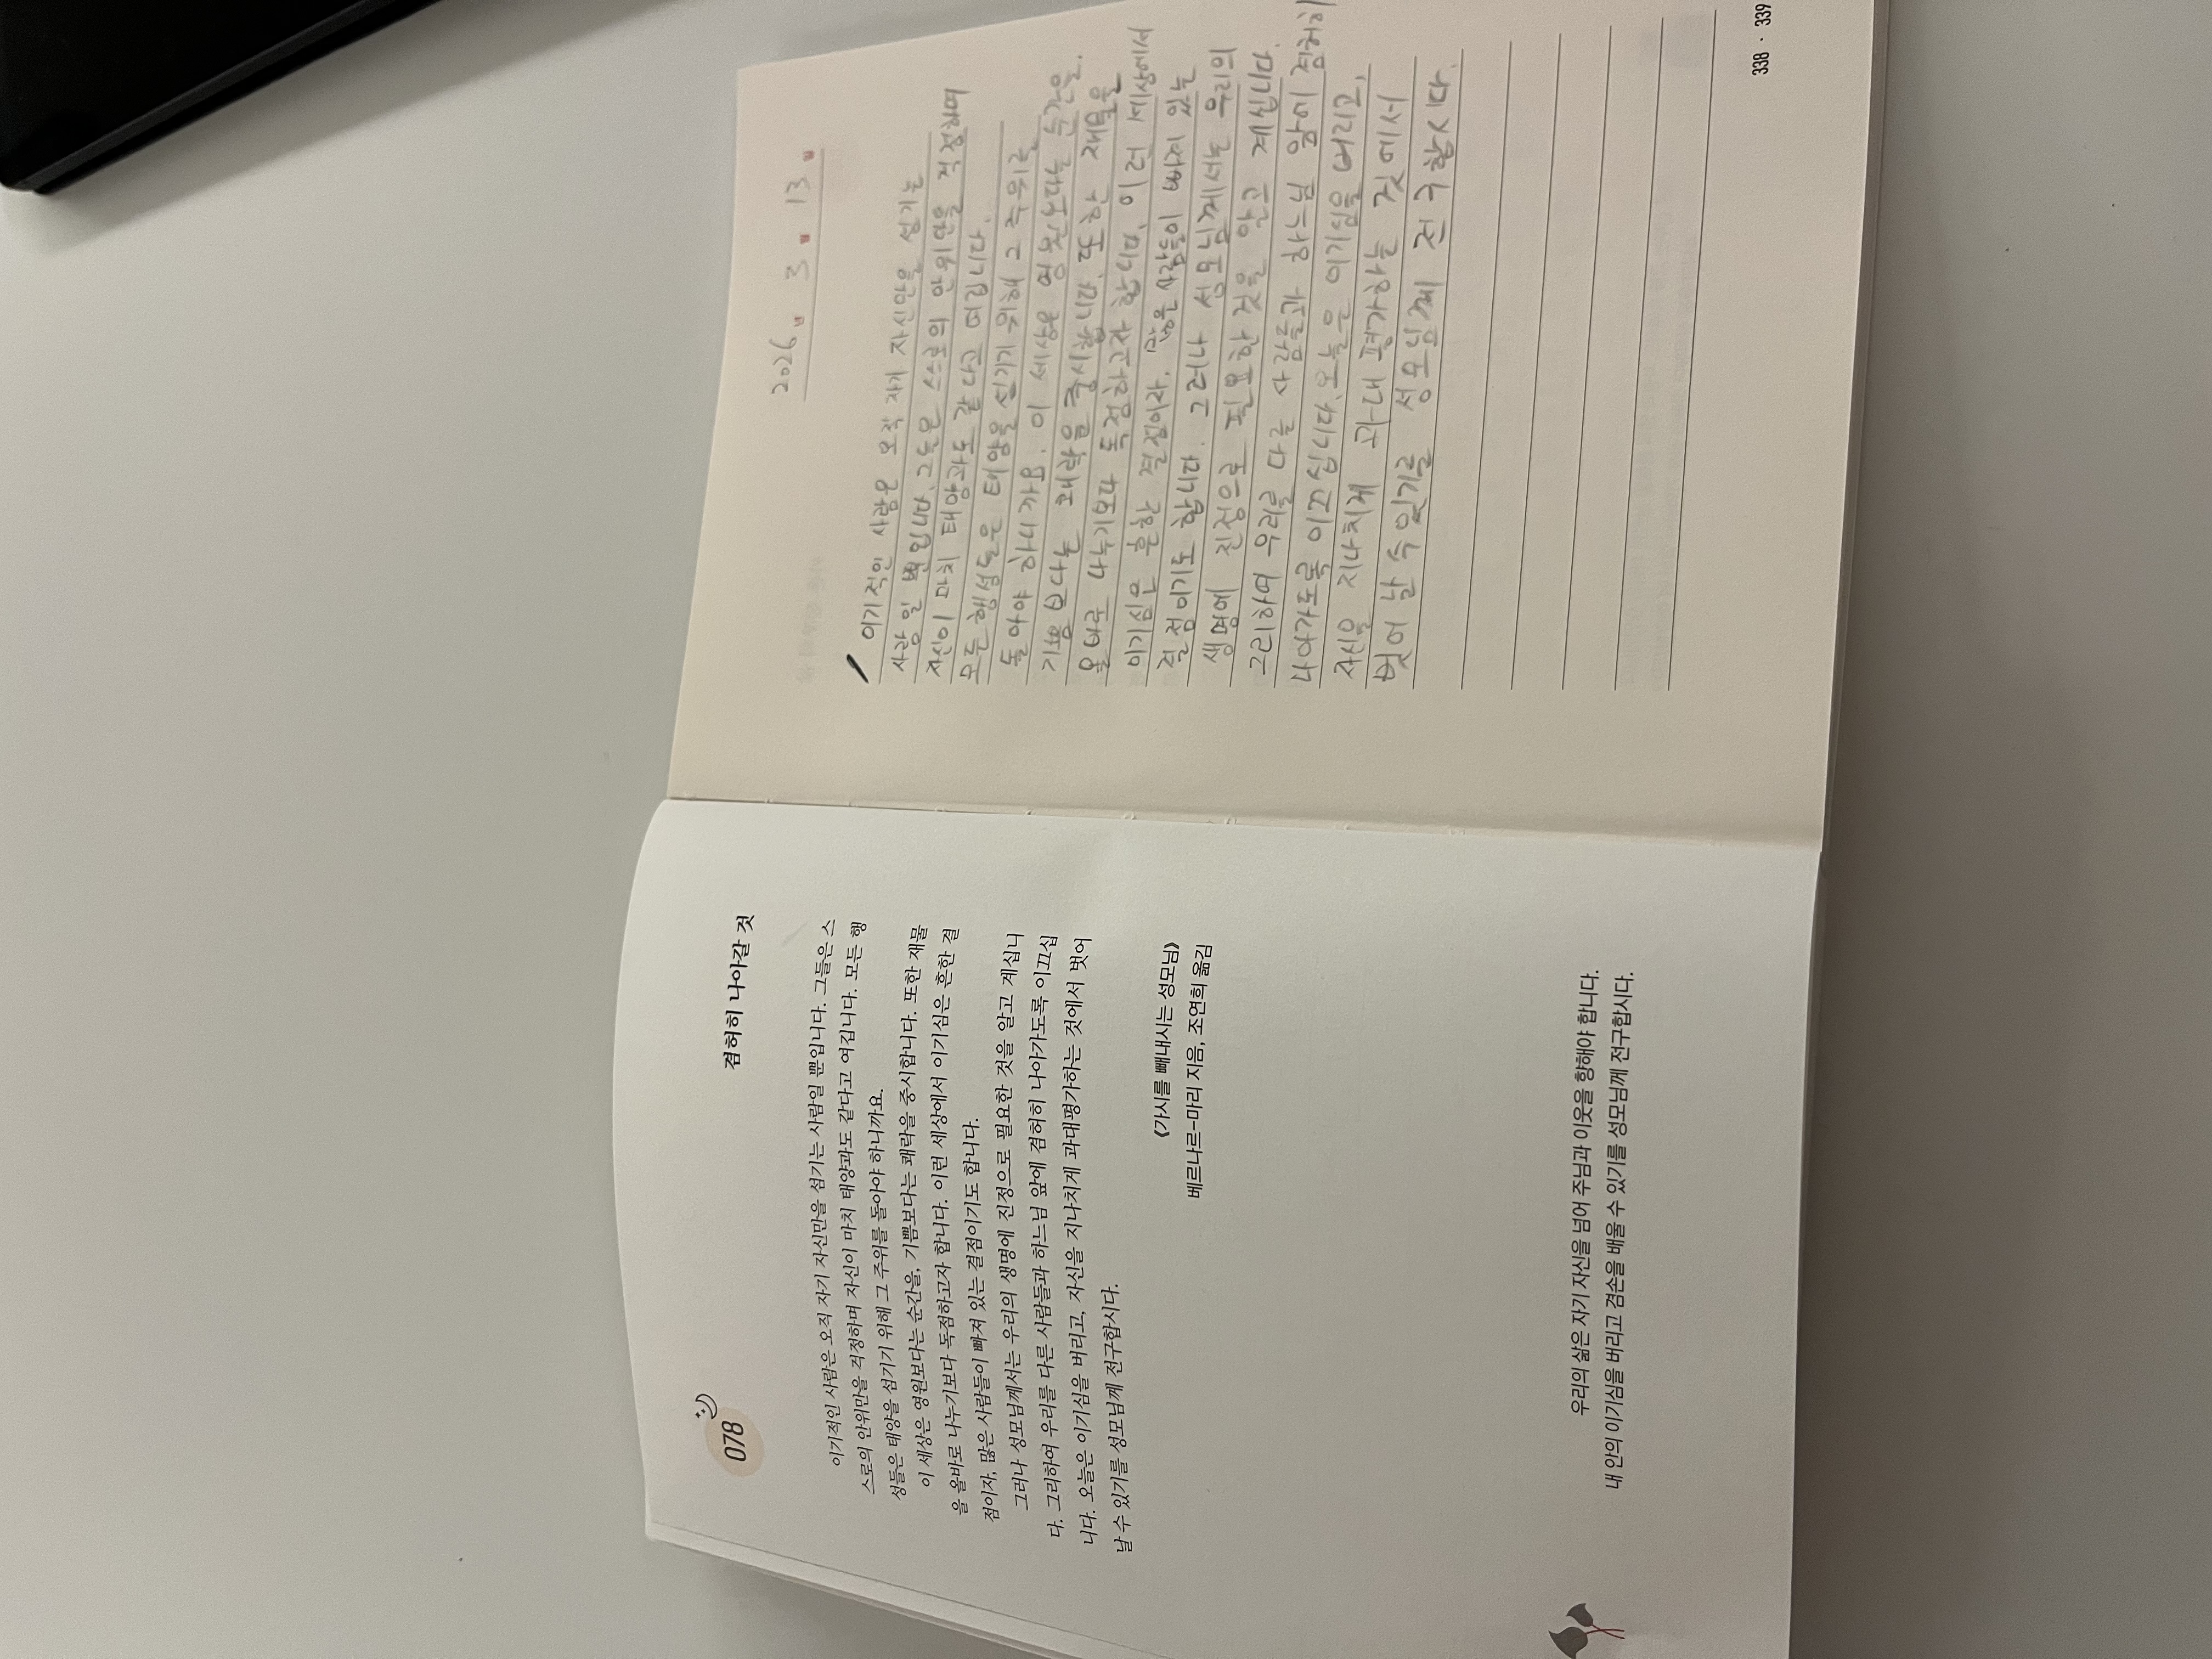 078
겸허히 나아갈 것
이기적인 사람은 오직 자기 자신만을 섬기는 사람일 뿐입니다. 그들은 스
스로의 안위만을 걱정하며 자신이 마치 태양과도 같다고 여깁니다. 모든 행
성들은 태양을 섬기기 위해 그 주위를 돌아야 하니까요.
이 세상은 영원보다는 순간을, 기쁨보다는 쾌락을 중시합니다. 또한 재물
을 올바로 나누기보다 독점하고자 합니다. 이런 세상에서 이기심은 흔한 결
점이자, 많은 사람들이 빠져 있는 결점이기도 합니다.
그러나 성모님께서는 우리의 생명에 진정으로 필요한 것을 알고 계십니
다. 그리하여 우리를 다른 사람들과 하느님 앞에 겸허히 나아가도록 이끄십
니다. 오늘은 이기심을 버리고, 자신을 지나치게 과대평가하는 것에서 벗어
날 수 있기를 성모님께 전구합시다.
《가시를 빼내시는 성모님》
베르나르-마리 지음, 조연희 옮김
우리의 삶은 자기 자신을 넘어 주님과 이웃을 향해야 합니다.
내 안의 이기심을 버리고 겸손을 배울 수 있기를 성모님께 전구합시다.
2026 년 3 월 13 일
이기적인 사람은 오직 자기 자신만을 섬기는
사람 일 뿐입니다. 그들은 스스로의 안위만을 걱정하며
자신이 마치 태양과도 같다고 여깁니다.
모든 행성들은 태양을 섬기기 위해 그 주위를
돌아야 하니까요. 이 세상은 영원보다는 순간을.
기쁨 보다는 쾌락을 중시합니다. 또한 재물을
올바로 나누기보다 독점하고자 합니다. 이런 세상에서
이기심은 흔한 결점이자. 많은 사람들이 빠져 있는
결점이기도 합니다. 그러나 성모님께서는 우리의
생명에 진정으로 필요한 것을 알고 계십니다.
그리하여 우리를 다른 사람들과 하느님 앞에 겸허히
나아가도록 이끄십니다. 오늘은 이기심을 버리고,
자신을 지나치게 과대평가하는 것에서
벗어 날 수 있기를 성모님께 전구합시다.
338 · 339